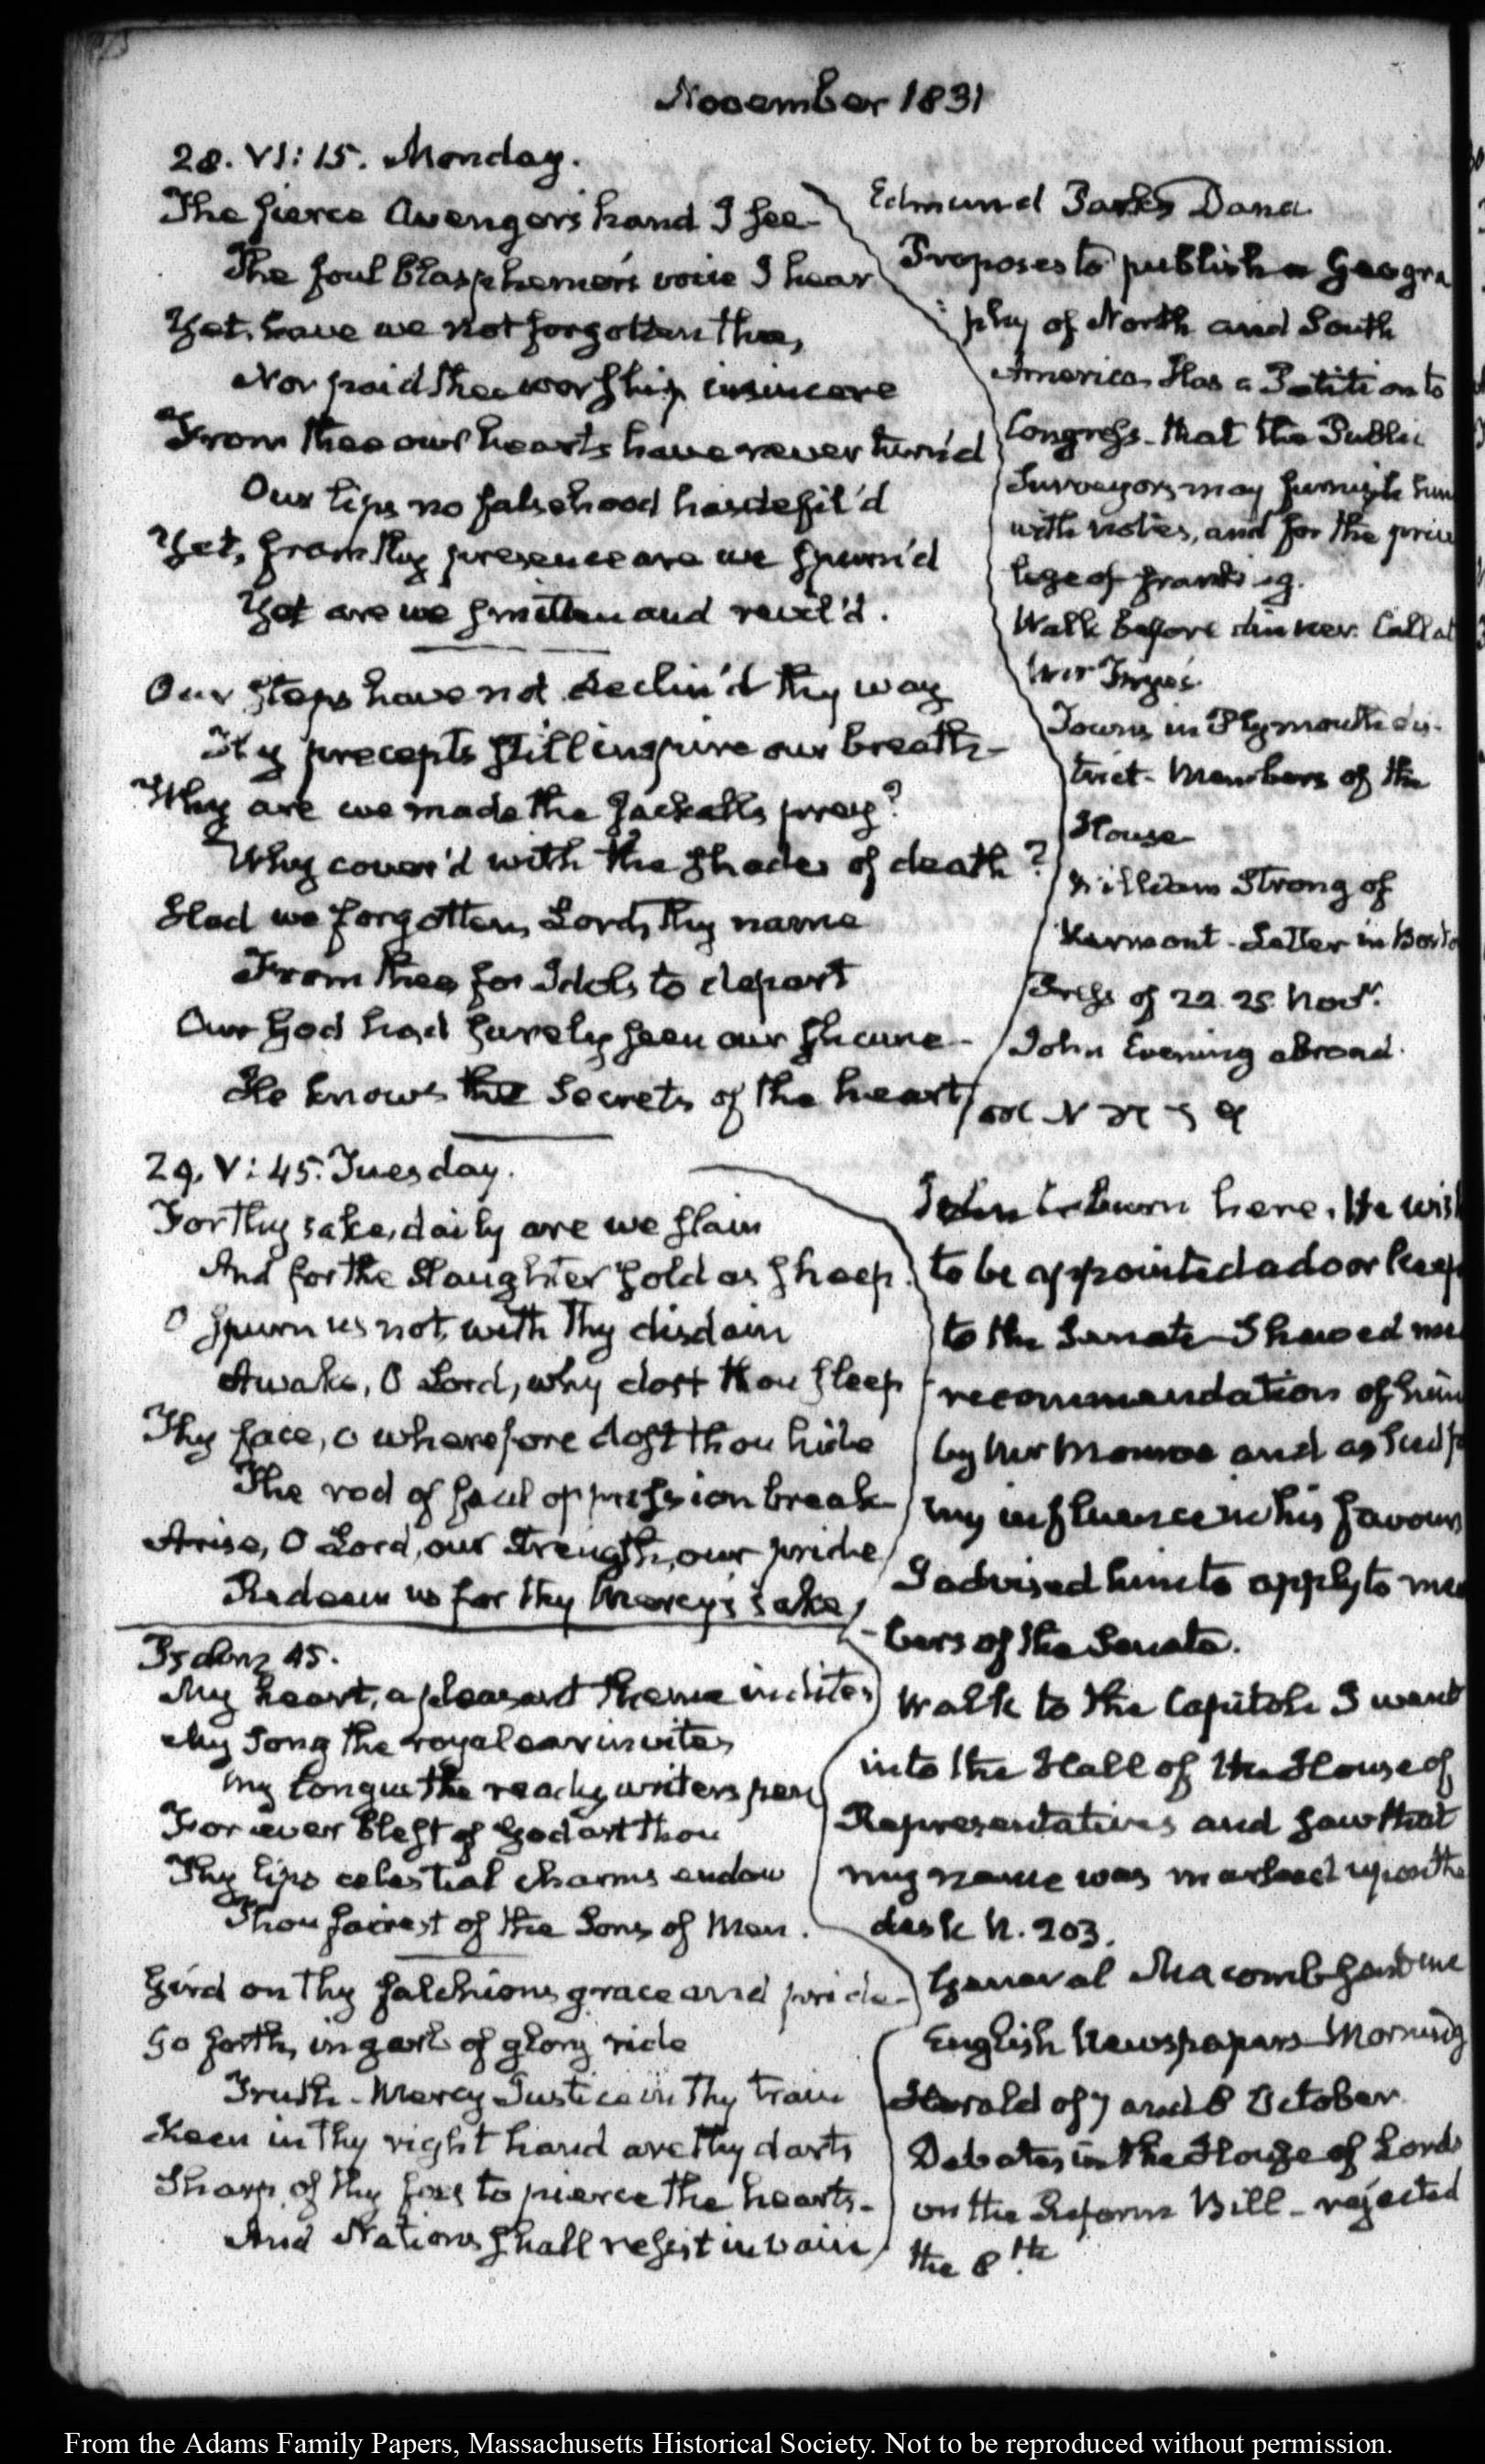 November 1831
28. VI: 15. Monday.
The fierce Avenger's hand I see
The foul blasphemer's voice I hear
Yet, have we not forgotten thee,
Nor paid thee worship insincere
From thee our hearts have never turn'd
Our lips no falsehood has defil'd
Yet, from thy presence are we spurn'd
Yet are we smitten and revil'd.
Our steps have not declin'd thy way
Thy precepts still inspire our breath
Why are we made the Jackalls prey?
Why cover'd with the shades of death?
Had we forgotten, Lord, thy name
From thee for Idols to depart
Our God had surely seen our shame
He knows the Secrets of the heart
Edmund Dana
Proposes to publish a Geogra
phy of North and South
America. Has a Petition to
Congress that the Public
Surveyors may furnish him
with notes, and for the privi
lege of franking.
Walk before dinner. Call at
Mr
Towns in Plymouth dis-
trict. Members of the
House
William Strong of
Vermont. Letter in Bosto
Press of 22. 25 Novr.
John Evening abroad.
29. V: 45. Tuesday.
For thy sake, daily are we slain
And for the Slaughter sold as sheep.
O spurn us not, with thy disdain
Awake, O Lord, why dost thou sleep
Thy face, O wherefore dost thou hide
The rod of foul oppression break
Arise, O Lord, our strength, our pride
Redeem us for thy Mercy's sake
John here. He wish
to be appointed a door keep
to the Senate. Shewed me
recommendation of him
by Mr Monroe and asked f
my influence in his favour
I advised him to apply to mem
bers of the Senate.
Psalm 45.
My heart, a pleasant theme indites
My Song the royal ear invites
My tongue the ready writers pen
For ever blest of God art thou
Thy lips celestial charms endow
Thou fairest of the Sons of Men.
Gird on thy falchion, grace and pride
Go forth, in garb of glory ride
Truth. Mercy Justice in thy train
Keen in thy right hand are thy darts
Sharp of thy foes to pierce the hearts.
And Nations shall resist in vain
Walk to the Capitol. I went
into the Hall of the House of
Representatives and saw that
my name was marked upon the
desk N. 203.
General Macomb sent me
English Newspapers Morning
Herald of 7 and 8 October
Debates in the House of Lords
on the Reform Bill - rejected
the 8th.
From the Adams Family Papers, Massachusetts Historical Society. Not to be reproduced without permission.